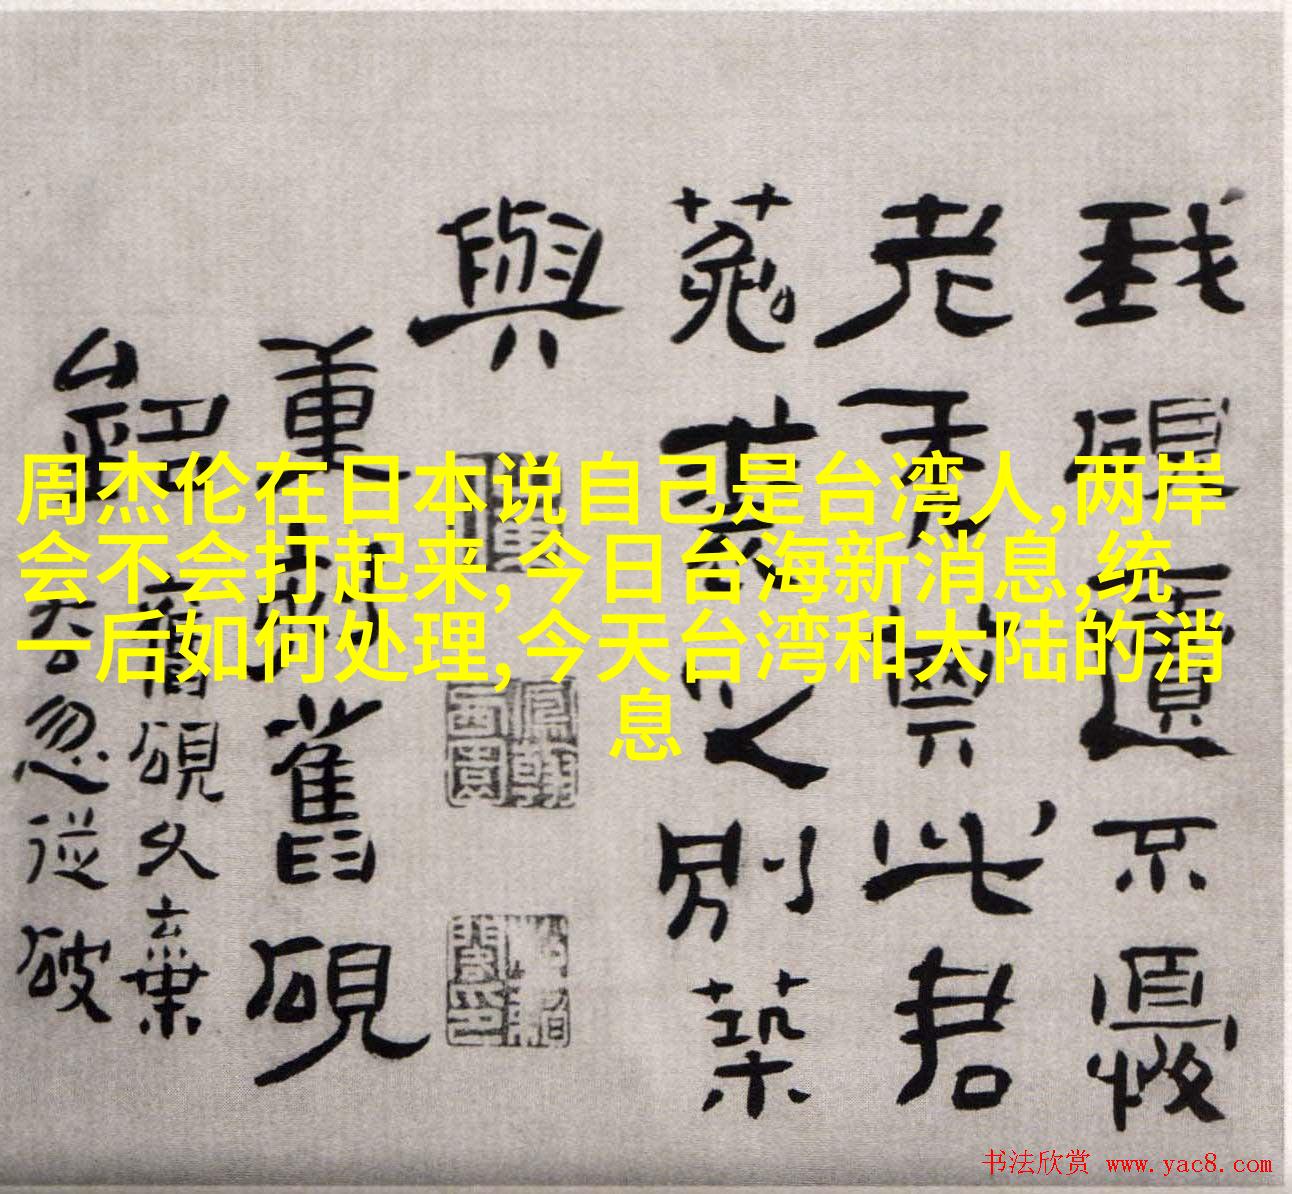 周杰伦在日本说自己是台湾人,两岸
会不会打起来,今日台海新消息,统
一后如何处理,今天台湾和大陆的消
息
我硯遺不
老禁此君
菟裘之別築
與
重舊硯
舊硯久棄
忽從破
书法欣赏 www.yac8.com